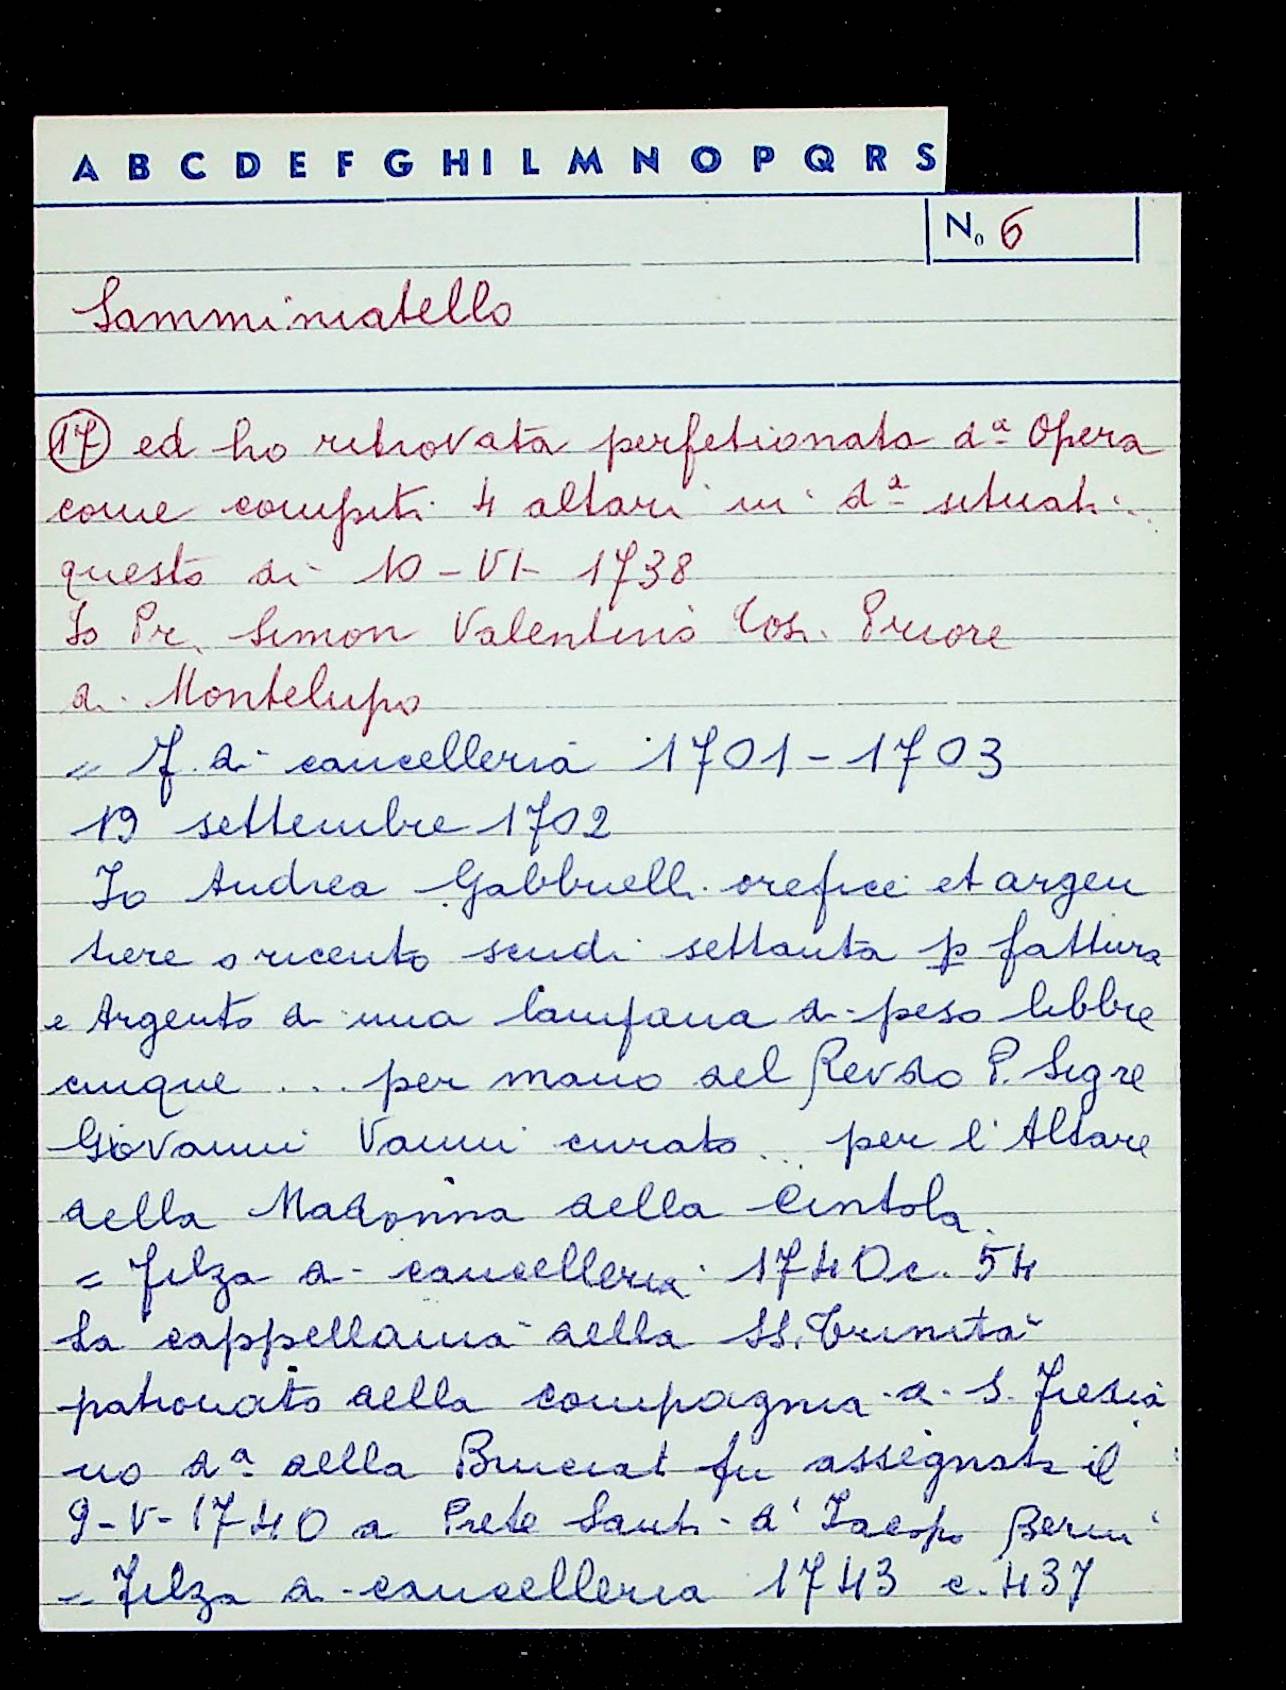 A B C D E F G H I L M N O P Q R S
No 6
Samminiatello
17 ed ho ritrovata perfetionata da Opera
come compiti 4 altari in da situati..
questo di 10-VI-1738
Io Pr. Simon Valentino Priore
di Montelupo
= F. di cancelleria 1701-1703
19 settembre 1702
Io Andrea Gabbrielli orefice et argen
tiere o ricevuto scudi settanta p fattura
e Argento di una lampana di peso libbre
cinque ... per mano del Revdo P. Sigre
Giovanni Vanni curato ... per l'Altare
della Madonna della Cintola.
= Filza di cancelleria 1740 c. 54
La cappellania della SS. Trinità
patronato della compagnia di S.
no da della fu assegnata il
9-V-1740 a Prete Santi d'Iacopo Berni
= Filza di cancelleria 1743 c. 437